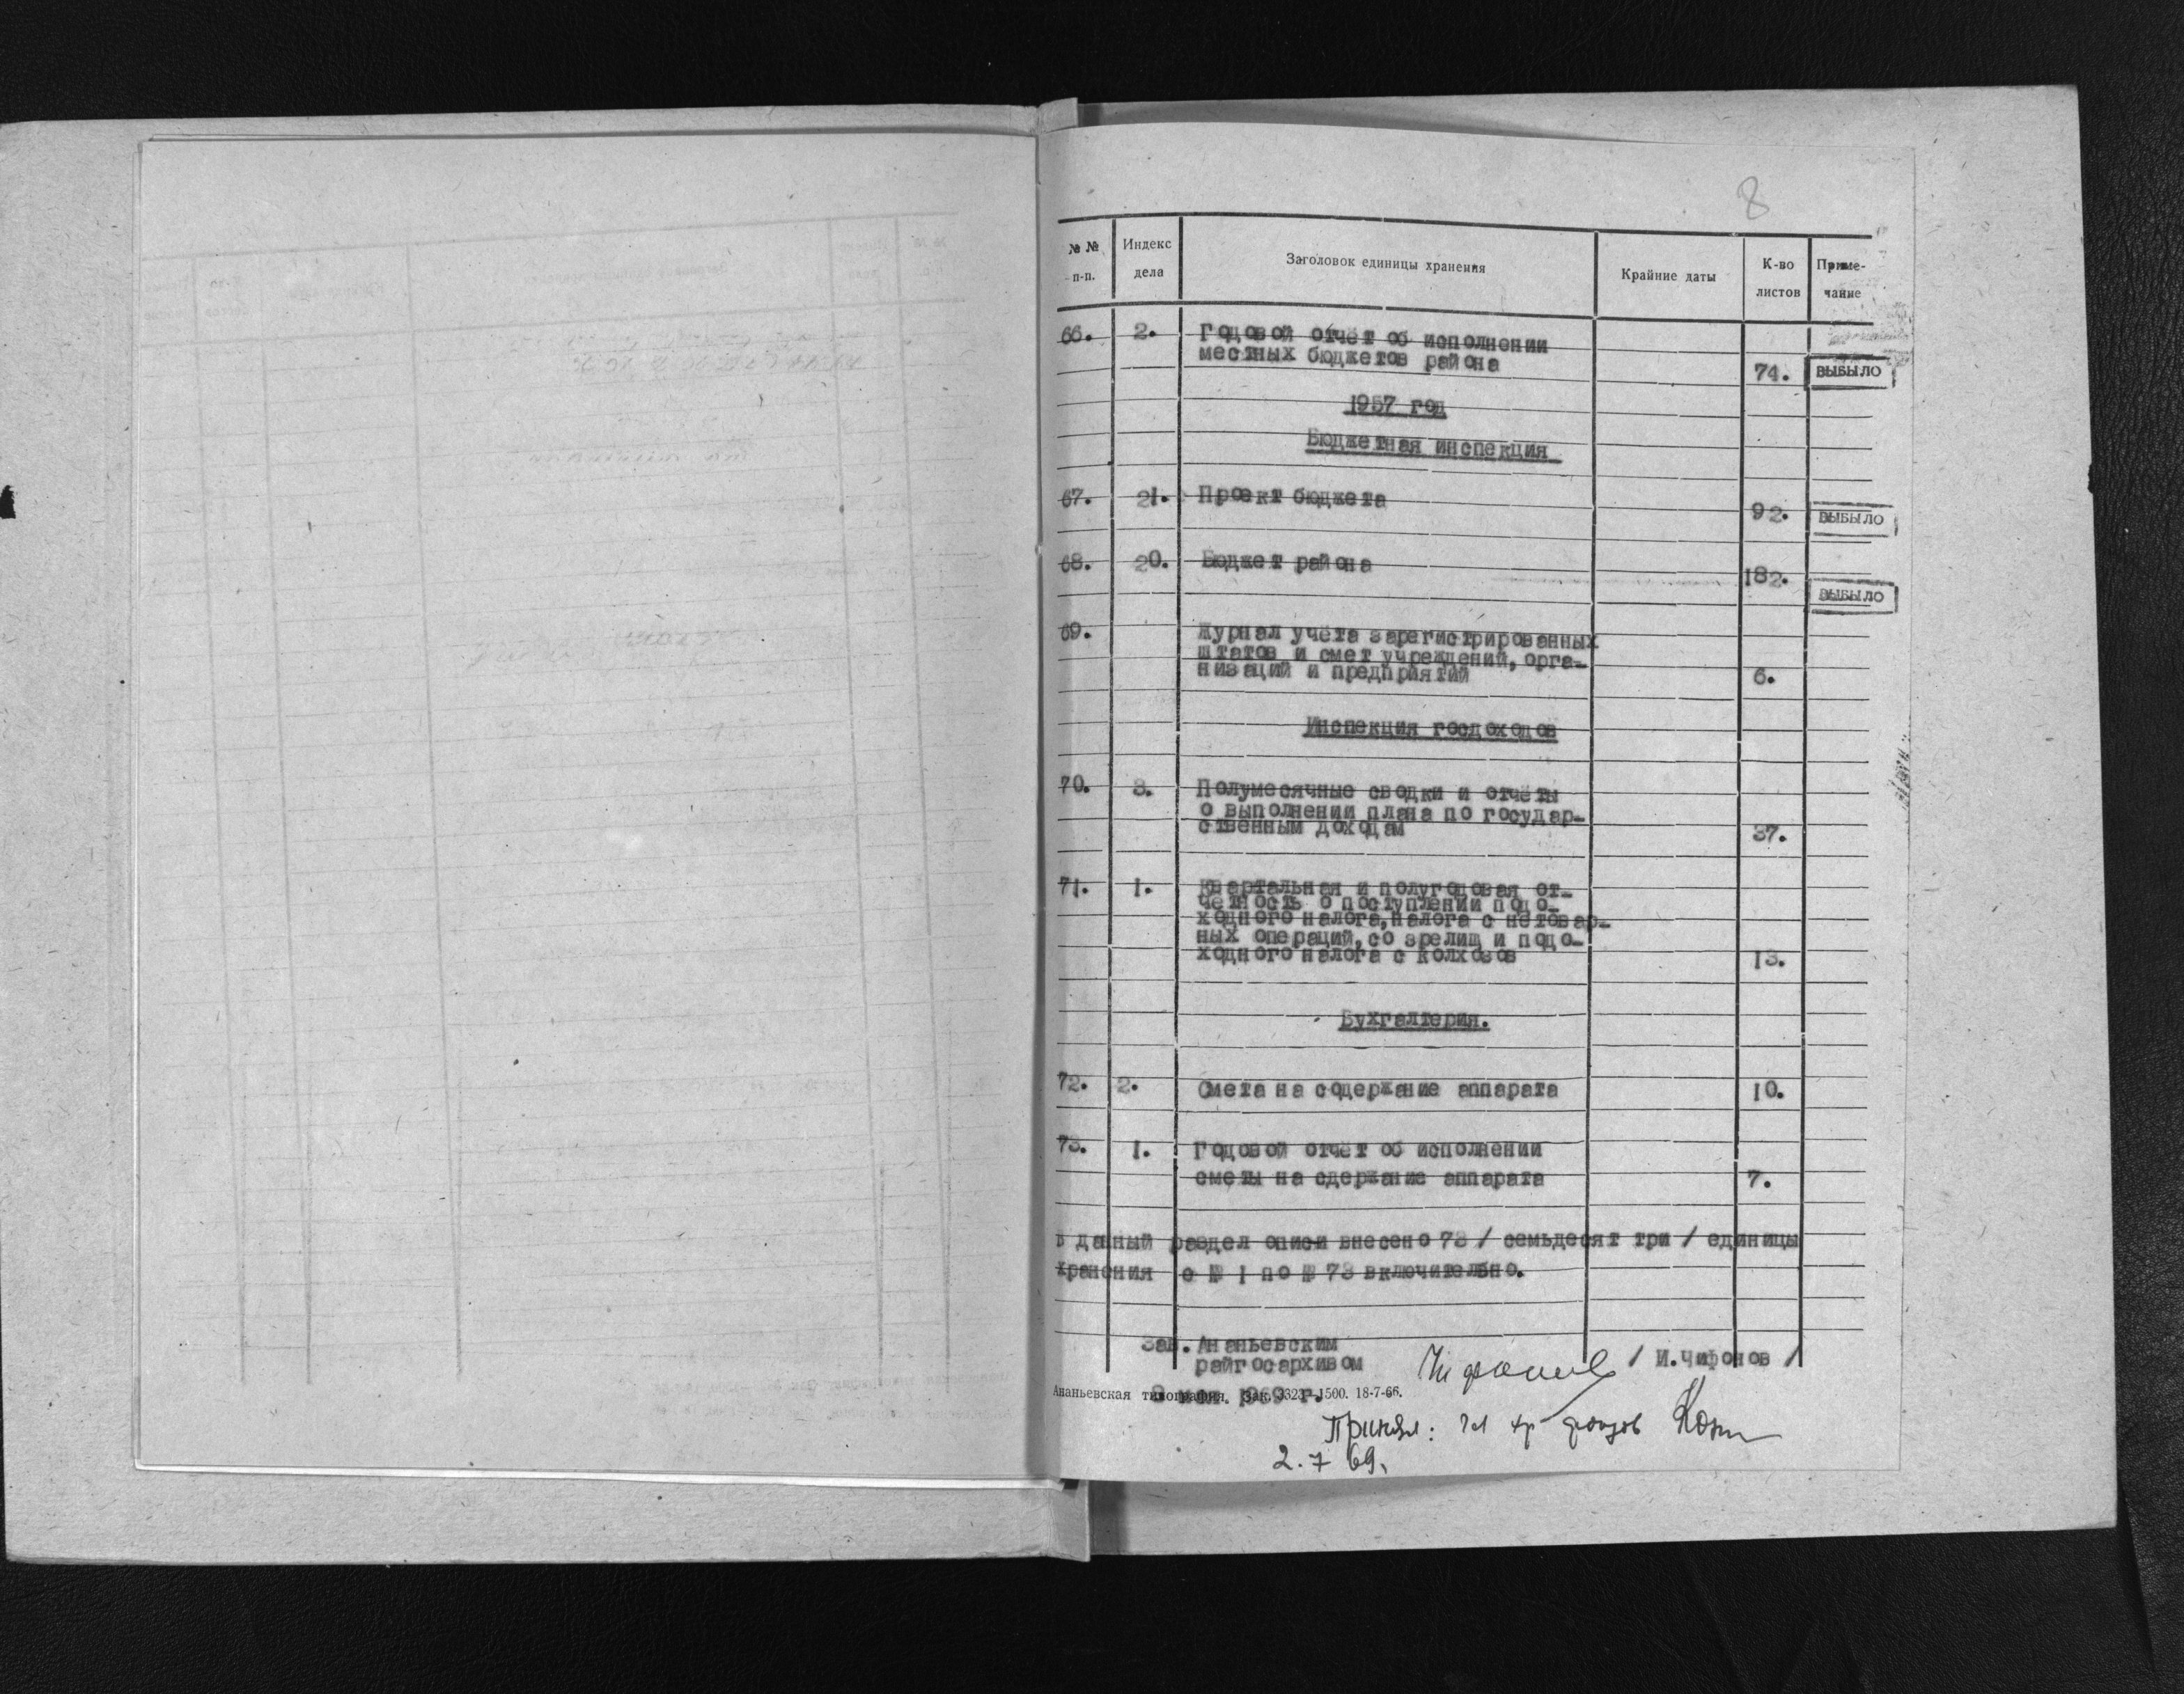 8
№ № п-п.
Индекс дела
Заголовок единицы хранения
Крайние даты
К-во листов
Приме-чание
66. 2. Годовой отчёт об исполнении
местных бюджетов района
74. ВЫБЫЛО
1957 год
Бюджетная инспекция
67. 21. Проект бюджета
92. ВЫБЫЛО
68. 20. Бюджет района
182.
ВЫБЫЛО
69. Журнал учёта зарегистрированных
штатов и смет учреждений, орга-
низаций и предприятий 6.
Инспекция госдоходов
70. 3. Полумесячные сводки и отчёты
о выполнении плана по государ-
ственным доходам 37.
71. 1. Квартальная и полугодовая от-
четность о поступлении подо-
ходного налога, налога с нетовар-
ных операций, со зрелищ и подо-
ходного налога с колхозов 13.
Бухгалтерия.
72. 2. Смета на содержание аппарата 10.
73. 1. Годовой отчёт об исполнении
сметы на сдержание аппарата 7.
В данный раздел описи внесено 73 / семьдесят три / единицы
хранения с № 1 по № 73 включительно.
Зав. Ананьевским
райгосархивом / И.Чифонов /
Ананьевская типография. Зак. 3323—1500. 18-7-66.
1969 г.
Принял: гл хр фондов
2.7 69.